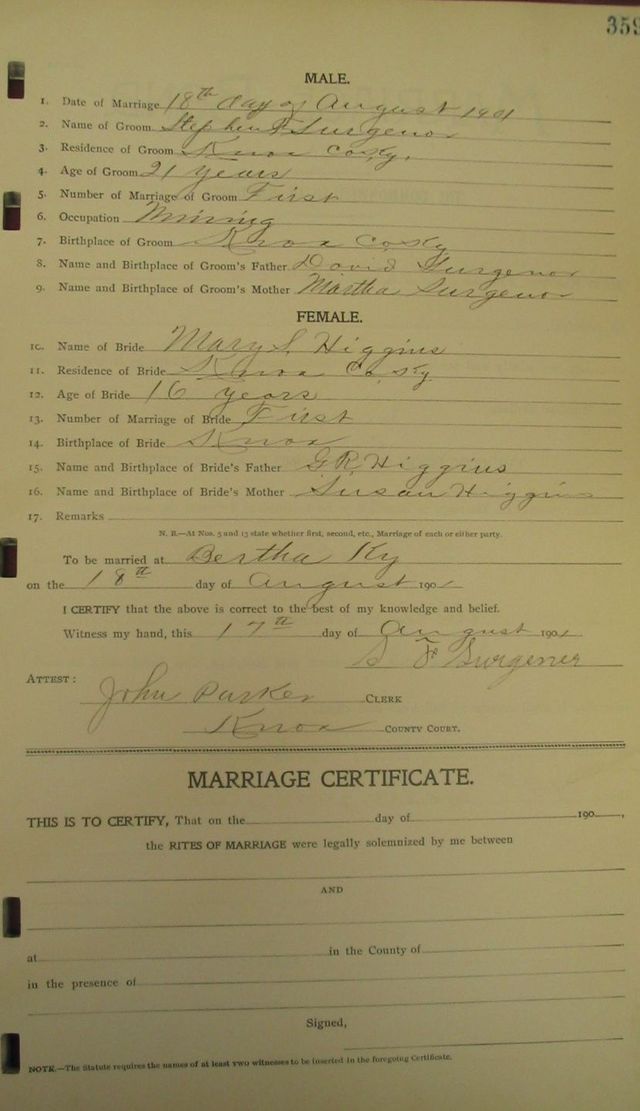 359
MALE.
1. Date of Marriage 18th day of August 1901
2. Name of Groom Stephen F Surgenor
3. Residence of Groom Knox Co Ky.
4. Age of Groom 21 years
5. Number of Marriage of Groom First
6. Occupation Mining
7. Birthplace of Groom Knox Co Ky
8. Name and Birthplace of Groom's Father David Surgenor
9. Name and Birthplace of Groom's Mother Martha Surgenor
FEMALE.
10. Name of Bride Mary S. Higgins
11. Residence of Bride Knox Co Ky
12. Age of Bride 16 years
13. Number of Marriage of Bride First
14. Birthplace of Bride Knox
15. Name and Birthplace of Bride's Father G R Higgins
16. Name and Birthplace of Bride's Mother Susan Higgins
17. Remarks
N. B.—At Nos. 5 and 13 state whether first, second, etc., Marriage of each or either party.
To be married at Bertha Ky
on the 18th day of August 1901
I CERTIFY that the above is correct to the best of my knowledge and belief.
Witness my hand, this 17th day of August 1901
S F Surgener
ATTEST:
John Parker CLERK
Knox COUNTY COURT.
MARRIAGE CERTIFICATE.
THIS IS TO CERTIFY, That on the day of 190 ,
the RITES OF MARRIAGE were legally solemnized by me between
AND
at in the County of
in the presence of
Signed,
NOTE.—The Statute requires the names of at least two witnesses to be inserted in the foregoing Certificate.